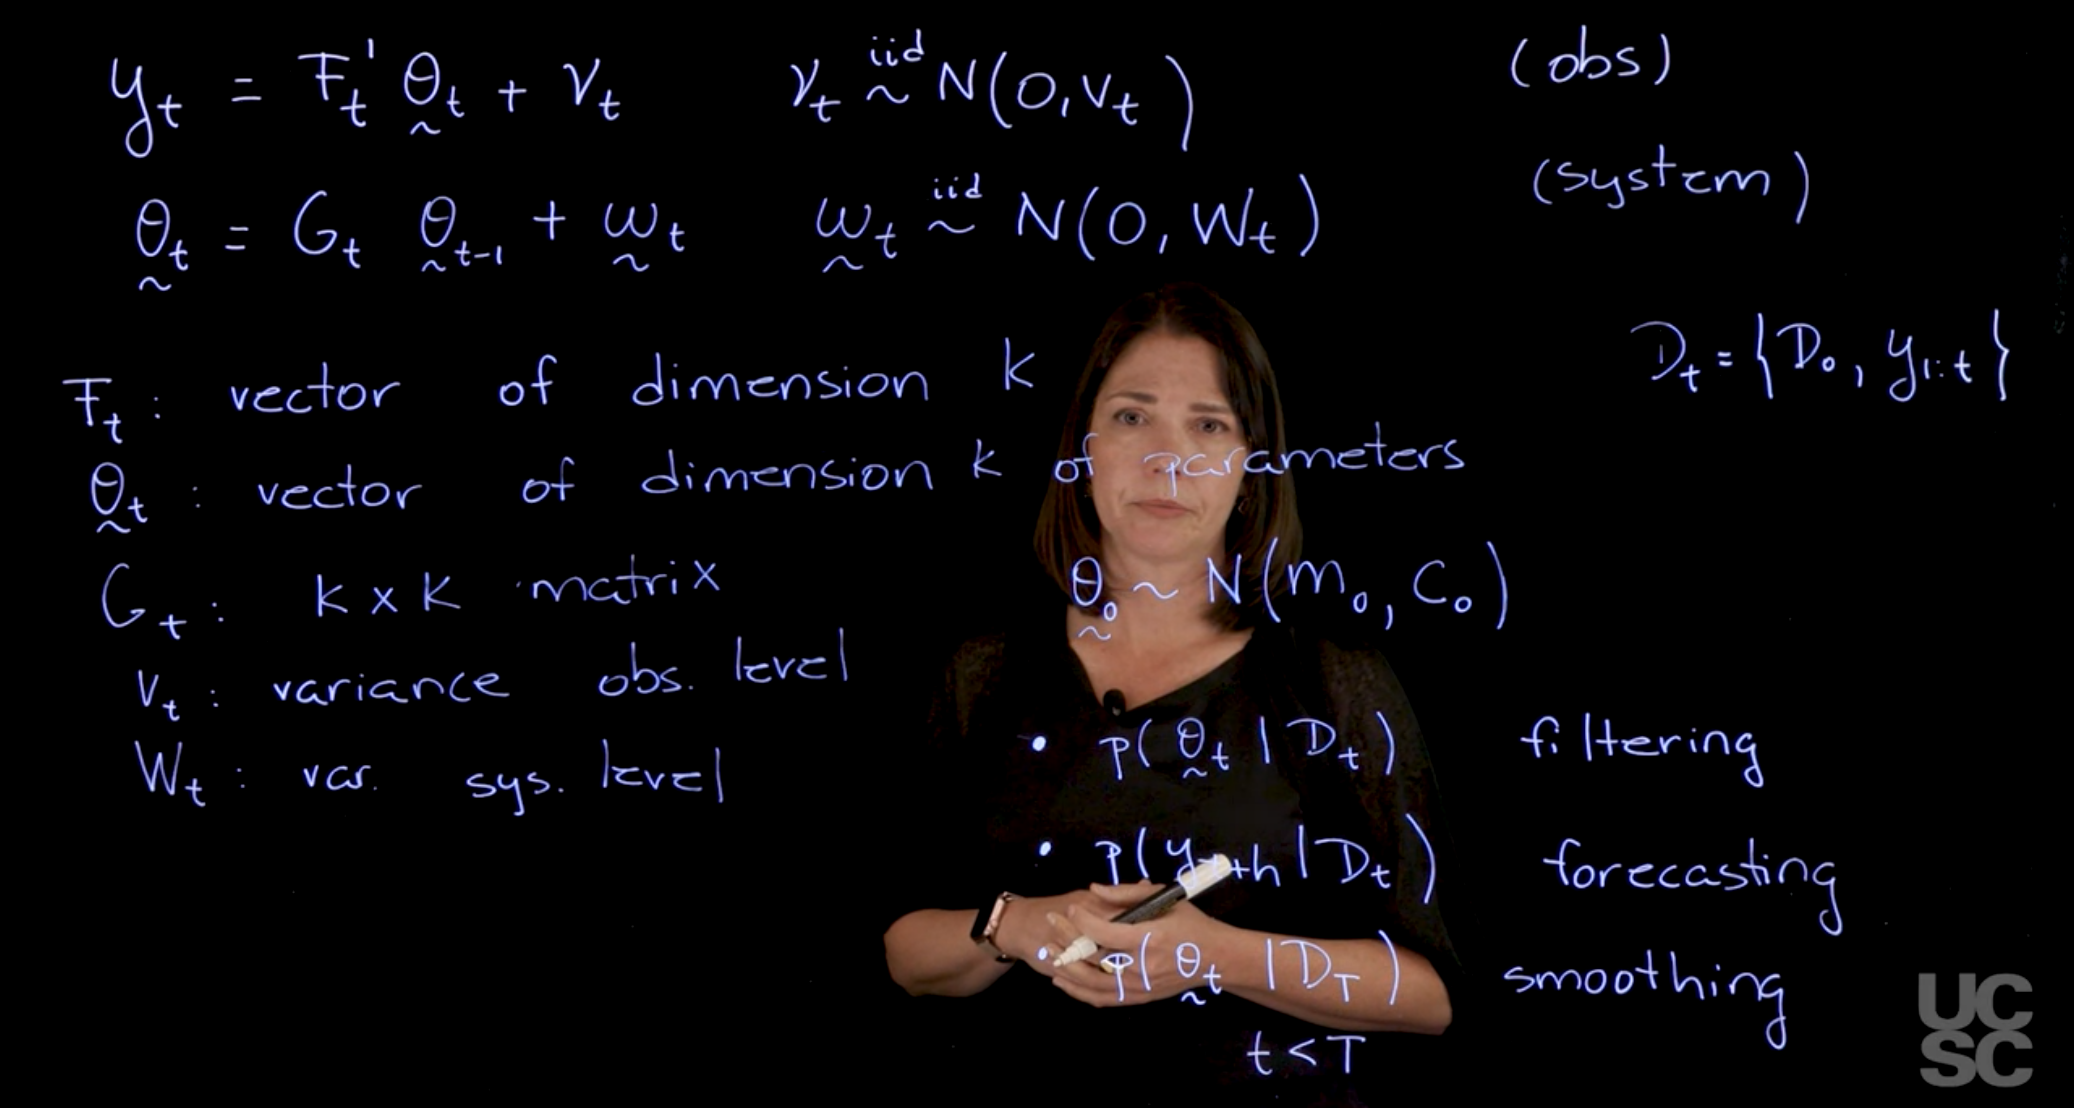 yₜ = Fₜ' θₜ + νₜ    νₜ iid ~ N(0, vₜ)    (obs)
θₜ = Gₜ θₜ₋₁ + ωₜ    ωₜ iid ~ N(0, Wₜ)    (system)
Dₜ = {D₀, y₁:ₜ}
Fₜ : vector of dimension k
θₜ : vector of dimension k of parameters
Gₜ : k x k matrix
θ₀ ~ N(m₀, C₀)
vₜ : variance obs. level
Wₜ : var. sys. level
• p(θₜ | Dₜ) filtering
• p(yₜ₊ₕ | Dₜ) forecasting
• p(θₜ | D_T) smoothing
t < T
UC
SC